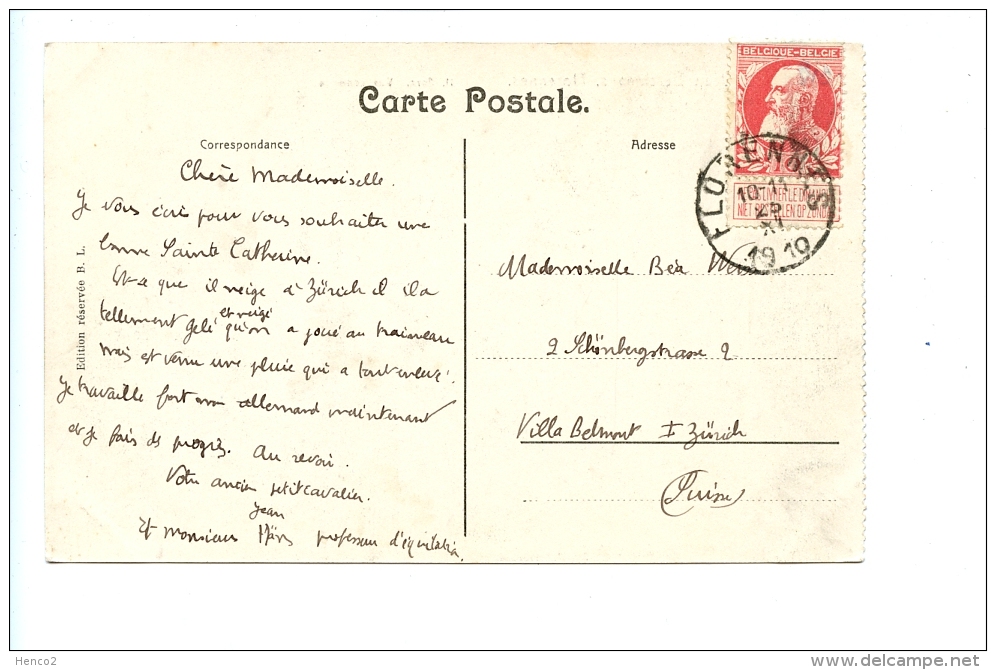 Carte Postale.
Correspondance
Adresse
BELGIQUE-BELGIE
NIET BESTELLEN OP ZONDAG
FLORENNES
10-11
25
XI
1910
Edition réservée B. L.
Chère Mademoiselle.
Je vous écris pour vous souhaiter une
bonne Sainte Catherine.
Est-ce que il neige à Zürich il
tellement gelé et neigé qu'on a joué au traineau
mais est venu une pluie qui a tout enlevé.
Je travaille fort mon allemand maintenant
et je fais des progrès. Au revoir.
Votre ancien petit cavalier.
Jean
Et monsieur professeur d'équitation.
Mademoiselle Béa
2 Schönbergstrasse 2
Villa Belmont I Zürich
(Suisse)
Henco2
http://www.delcampe.net